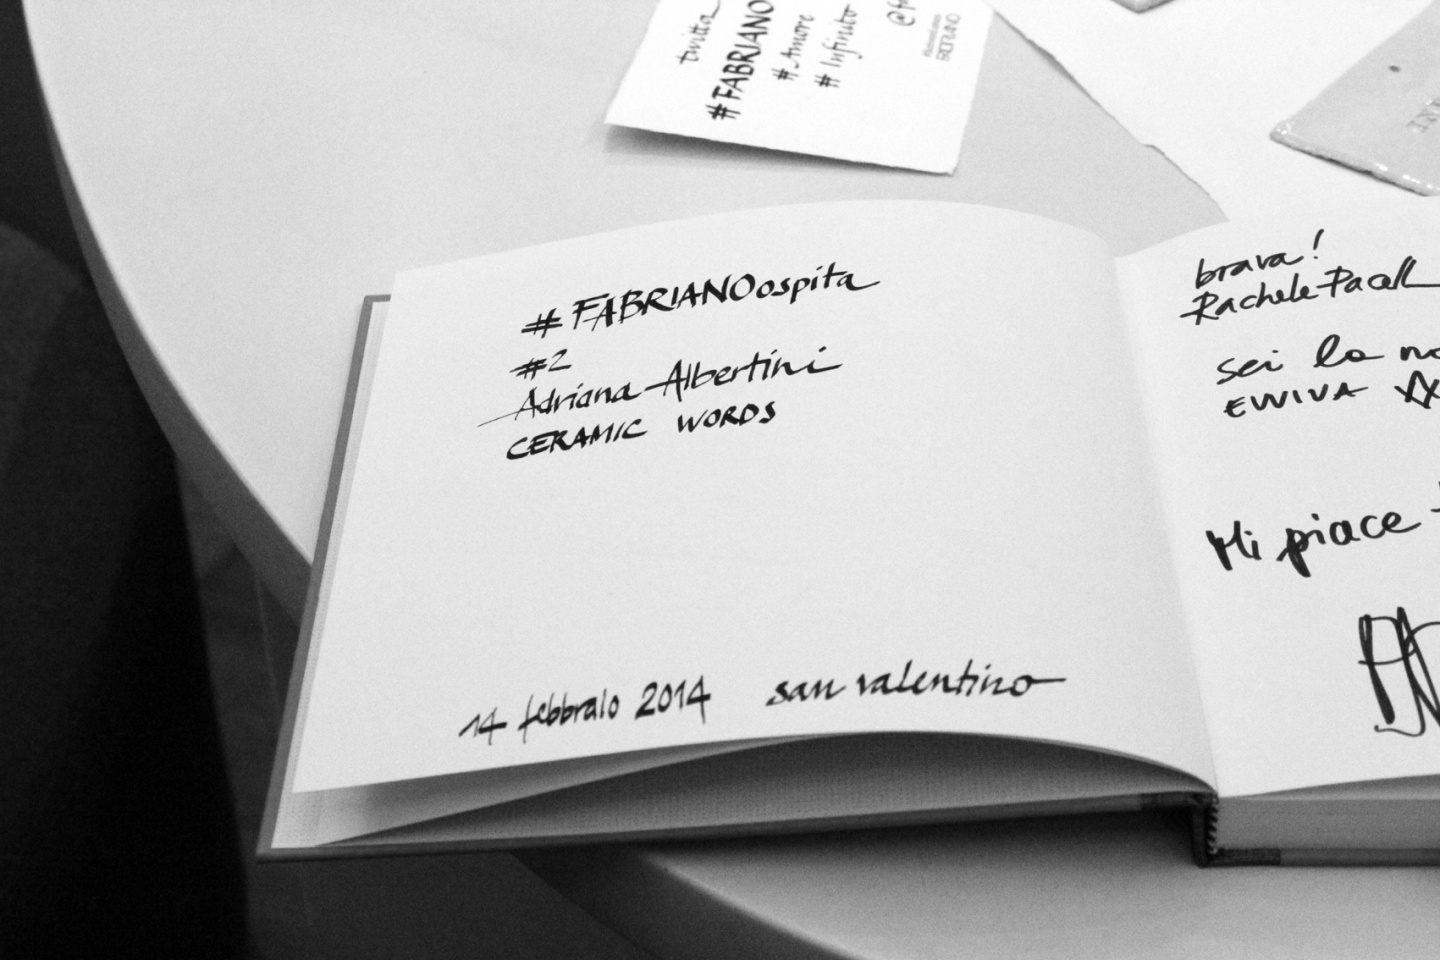 twitta
#FABRIANO
#Amore
#Infinito
#FABRIANOospita
#2
Adriana Albertini
CERAMIC WORDS
14 febbraio 2014 san valentino
brava!
Rachele
sei la
EVVIVA
Mi piace